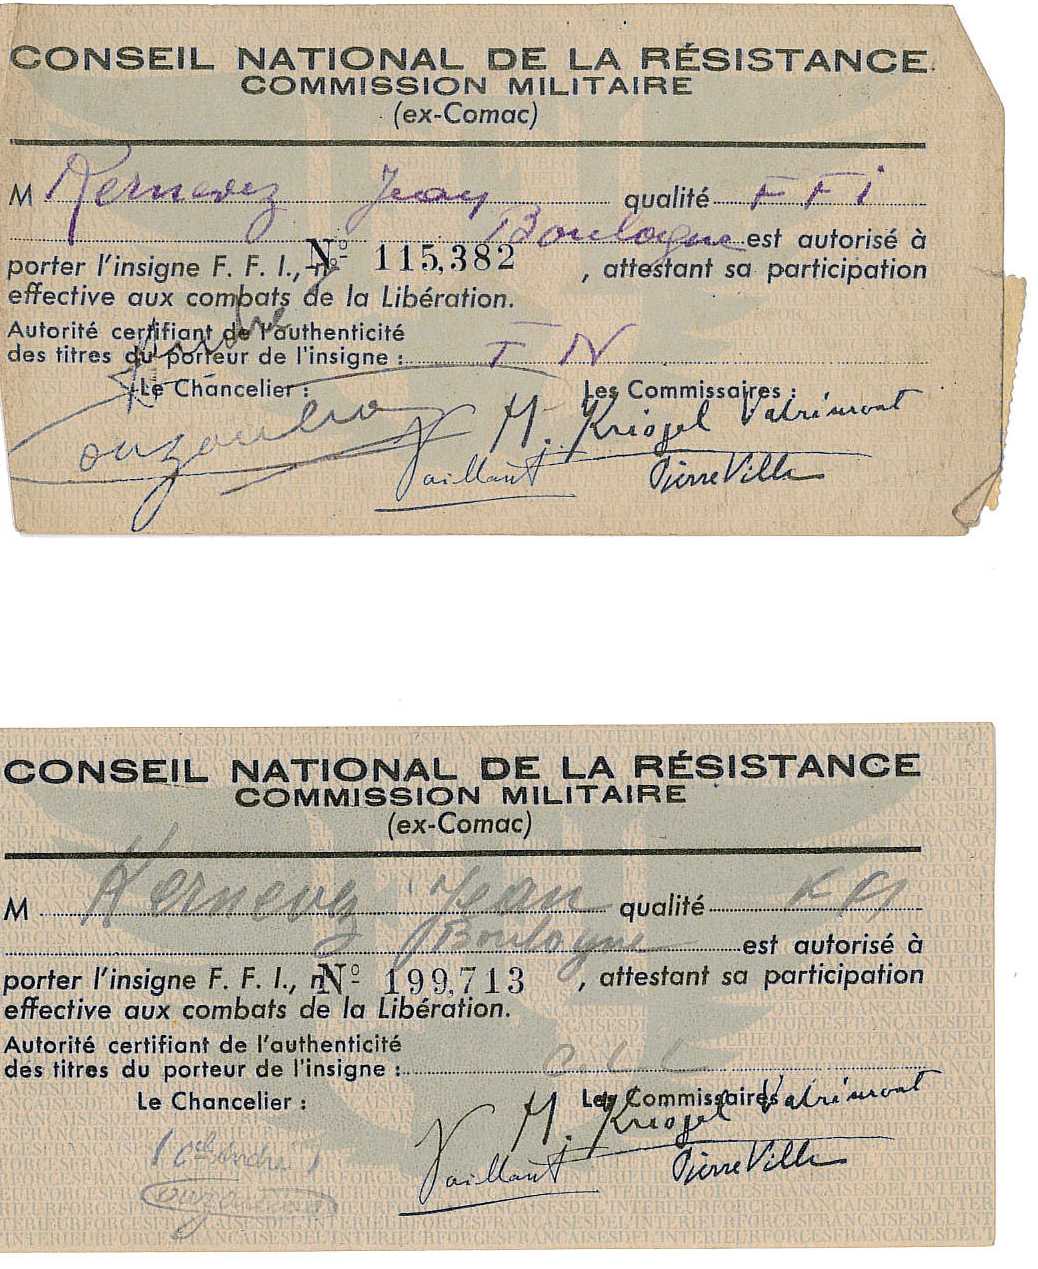 CONSEIL NATIONAL DE LA RÉSISTANCE
COMMISSION MILITAIRE
(ex-Comac)
M Kernevez Jean qualité FFI
Boulogne est autorisé à
porter l'insigne F. F. I., n° Nº 115,382, attestant sa participation
effective aux combats de la Libération.
Autorité certifiant de l'authenticité
des titres du porteur de l'insigne : FN
Le Chancelier : Les Commissaires :
André
Ouzoulias M. Kriegel Valrimont
Vaillant Pierre Villon
CONSEIL NATIONAL DE LA RÉSISTANCE
COMMISSION MILITAIRE
(ex-Comac)
M Kernevez Jean qualité FFI
Boulogne est autorisé à
porter l'insigne F. F. I., n Nº 199,713, attestant sa participation
effective aux combats de la Libération.
Autorité certifiant de l'authenticité
des titres du porteur de l'insigne : C.L.L
Le Chancelier : Les Commissaires
Cel André M. Kriegel Valrimont
Ouzoulias Vaillant Pierre Villon